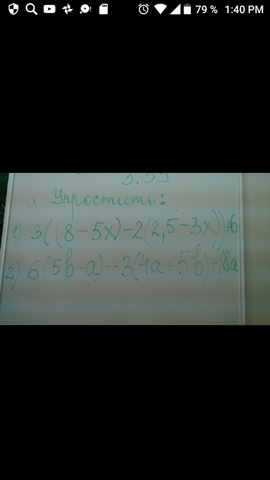 79 % 1:40 PM
и Упростить:
1) 3((8-5x)-2(2,5-3x))+6
2) 6(5b-a)-3(4a+5b)+18a